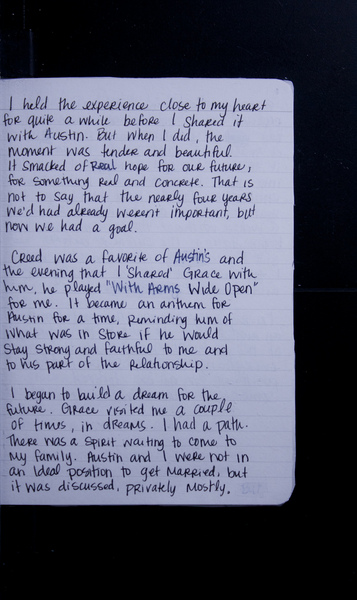 I held the experience close to my heart
for quite a while before I shared it
with Austin. But when I did, the
moment was tender and beautiful.
It smacked of Real hope for our future,
for something Real and concrete. That is
not to say that the nearly four years
we'd had already weren't important, but
now we had a goal.
Creed was a favorite of Austin's and
the evening that I 'shared' Grace with
him, he played "With Arms Wide Open"
for me. It became an anthem for
Austin for a time, Reminding him of
what was in store if he would
stay strong and faithful to me and
to his part of the Relationship.
I began to build a dream for the
future. Grace visited me a couple
of times, in dreams. I had a path.
There was a spirit waiting to come to
my family. Austin and I were not in
an ideal position to get married, but
it was discussed, privately mostly.